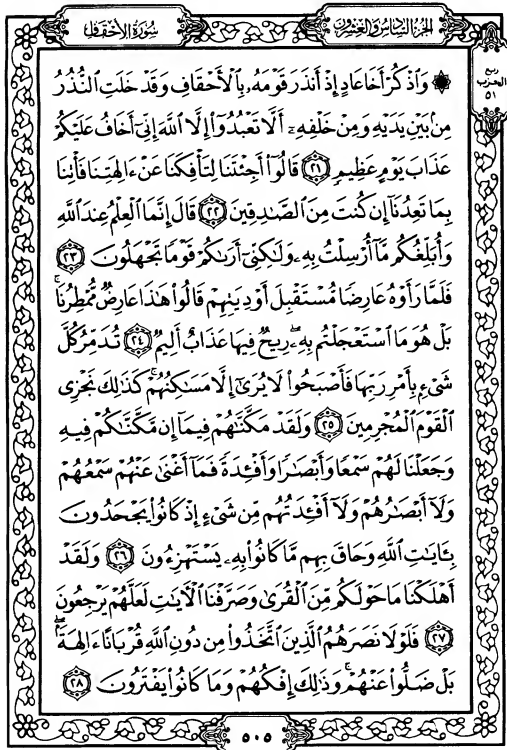 سُورَةُ الأَحْقَافِ
الجُزْءُ السَّادِسُ وَالعِشْرُونَ
ربع
الحزب
٥١
۞ وَٱذْكُرْ أَخَا عَادٍ إِذْ أَنذَرَ قَوْمَهُۥ بِٱلْأَحْقَافِ وَقَدْ خَلَتِ ٱلنُّذُرُ
مِنۢ بَيْنِ يَدَيْهِ وَمِنْ خَلْفِهِۦٓ أَلَّا تَعْبُدُوٓا۟ إِلَّا ٱللَّهَ إِنِّىٓ أَخَافُ عَلَيْكُمْ
عَذَابَ يَوْمٍ عَظِيمٍ ٢١ قَالُوٓا۟ أَجِئْتَنَا لِتَأْفِكَنَا عَنْ ءَالِهَتِنَا فَأْتِنَا
بِمَا تَعِدُنَآ إِن كُنتَ مِنَ ٱلصَّـٰدِقِينَ ٢٢ قَالَ إِنَّمَا ٱلْعِلْمُ عِندَ ٱللَّهِ
وَأُبَلِّغُكُم مَّآ أُرْسِلْتُ بِهِۦ وَلَـٰكِنِّىٓ أَرَىٰكُمْ قَوْمًا تَجْهَلُونَ ٢٣
فَلَمَّا رَأَوْهُ عَارِضًا مُّسْتَقْبِلَ أَوْدِيَتِهِمْ قَالُوا۟ هَـٰذَا عَارِضٌ مُّمْطِرُنَا ۚ
بَلْ هُوَ مَا ٱسْتَعْجَلْتُم بِهِۦ ۖ رِيحٌ فِيهَا عَذَابٌ أَلِيمٌ ٢٤ تُدَمِّرُ كُلَّ
شَىْءٍۭ بِأَمْرِ رَبِّهَا فَأَصْبَحُوا۟ لَا يُرَىٰٓ إِلَّا مَسَـٰكِنُهُمْ ۚ كَذَٰلِكَ نَجْزِى
ٱلْقَوْمَ ٱلْمُجْرِمِينَ ٢٥ وَلَقَدْ مَكَّنَّـٰهُمْ فِيمَآ إِن مَّكَّنَّـٰكُمْ فِيهِ
وَجَعَلْنَا لَهُمْ سَمْعًا وَأَبْصَـٰرًا وَأَفْـِٔدَةً فَمَآ أَغْنَىٰ عَنْهُمْ سَمْعُهُمْ
وَلَآ أَبْصَـٰرُهُمْ وَلَآ أَفْـِٔدَتُهُم مِّن شَىْءٍ إِذْ كَانُوا۟ يَجْحَدُونَ
بِـَٔايَـٰتِ ٱللَّهِ وَحَاقَ بِهِم مَّا كَانُوا۟ بِهِۦ يَسْتَهْزِءُونَ ٢٦ وَلَقَدْ
أَهْلَكْنَا مَا حَوْلَكُم مِّنَ ٱلْقُرَىٰ وَصَرَّفْنَا ٱلْـَٔايَـٰتِ لَعَلَّهُمْ يَرْجِعُونَ
٢٧ فَلَوْلَا نَصَرَهُمُ ٱلَّذِينَ ٱتَّخَذُوا۟ مِن دُونِ ٱللَّهِ قُرْبَانًا ءَالِهَةًۢ ۖ
بَلْ ضَلُّوا۟ عَنْهُمْ ۚ وَذَٰلِكَ إِفْكُهُمْ وَمَا كَانُوا۟ يَفْتَرُونَ ٢٨
٥٠٥